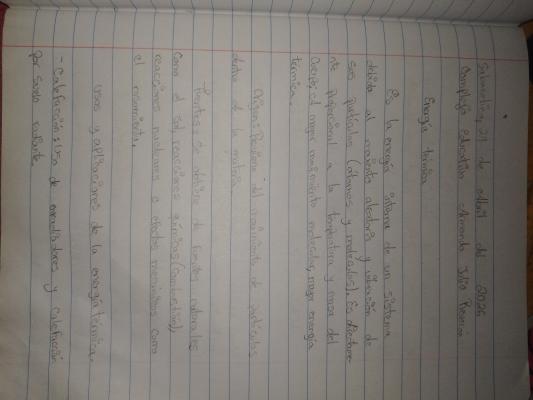 Sabaneta, 29 de abril del 2026
Complejo educativo Armando Julio Reverón
Energía térmica
Es la energía interna de un sistema
debida al movimiento aleatorio y vibración de
sus partículas (átomos y moléculas). Es directame-
nte proporcional a la temperatura y masa del
cuerpo; a mayor movimiento molecular, mayor energía
térmica.
Origen: Proviene del movimiento de partículas
dentro de la materia.
Fuentes: Se obtiene de fuentes naturales
como el sol, reacciones químicas (combustión),
reacciones nucleares o efectos mecánicos como
el rozamiento.
Usos y aplicaciones de la energía térmica.
- Calefacción: Uso de radiadores y calefacción
por suelo radiante.